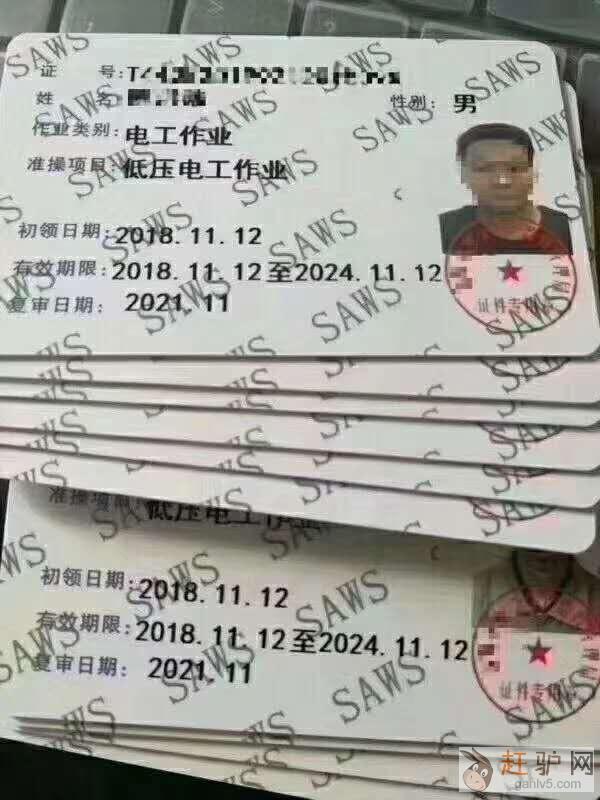 证 号:T
姓 名:
性别: 男
作业类别: 电工作业
准操项目: 低压电工作业
初领日期: 2018.11.12
有效期限: 2018.11.12至2024.11.12
复审日期: 2021.11
证件专用章
SAWS
SAWS
SAWS
SAWS
SAWS
SAWS
SAWS
SAWS
准操项目: 低压电工作业
初领日期: 2018.11.12
有效期限: 2018.11.12至2024.11.12
复审日期: 2021.11
证件专用章
SAWS
SAWS
SAWS
SAWS
赶驴网
ganlv5.com